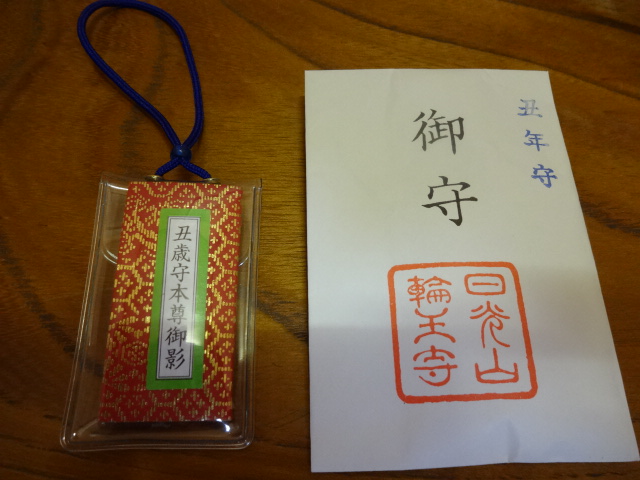 丑歳守本尊御影
丑年守
御守
日光山
輪王寺